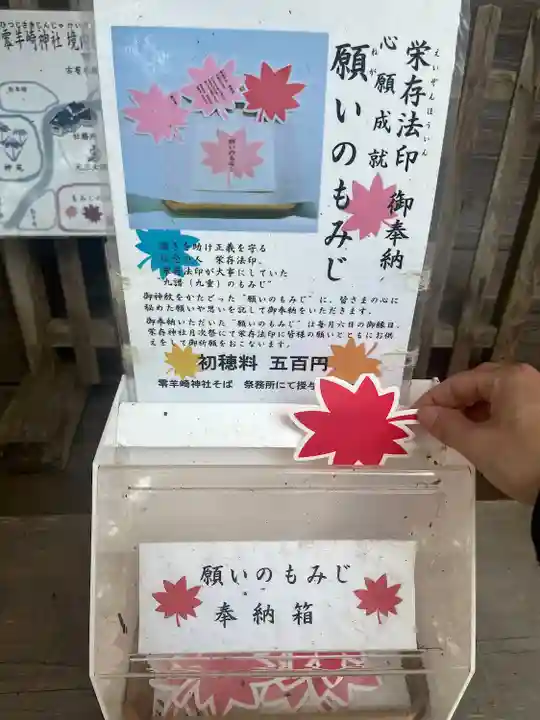 ひつじさきじんじゃ
零羊崎神社 境内
古墳
神苑
社務所
えいぞんほういん
栄存法印 御奉納
心願成就
願いのもみじ
ねが
願いのもみじ
を助け正義を守る
栄存法印。
栄存法印が大事にしていた
"九譜(九重)のもみじ"
御神紋をかたどった"願いのもみじ"に、皆さまの心に
秘めた願いや思いを記して御奉納をいただきます。
御奉納いただいた"願いのもみじ"は毎月六日の御縁日、
栄存神社月次祭にて栄存法印に皆様の願いとともにお供
えをして御祈願をおこないます。
初穂料 五百円
零羊崎神社そば 祭務所にて授与
願いのもみじ
奉納箱